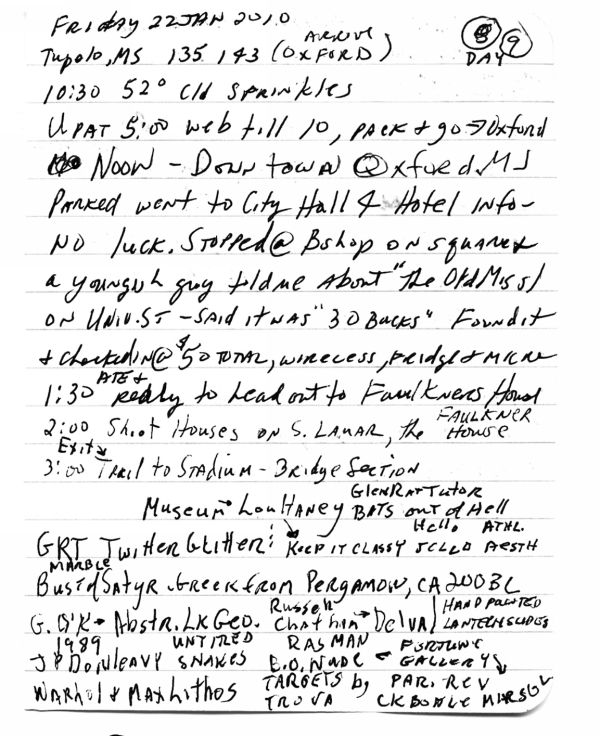 FRIDAY 22 JAN 2010
Tupolo, MS 135 143 (OXFORD) ARRIVE
8 9 DAY
10:30 52° Cld SPRINKLES
UP AT 5:00 web till 10, PACK & go → Oxford
NOON - DOWNTOWN Oxford, MS
PARKED went to City Hall & Hotel info-
NO luck. Stopped @ Bshop on square &
a youngish guy told me About "The Old Miss"
ON UNIV. ST - SAID it WAS "30 BUCKS" Found it
& checked in @ $50 TOTAL, WIRELESS, FRIDGE & MICRO
1:30 ATE & ready to head out to Faulkners House
2:00 Shoot Houses on S. LAMAR, the FAULKNER House
Exit
3:00 TRAIL to STADIUM - BRIDGE SECTION
Museum → Lou Haney GlenRayTutor BATS out of Hell
Hello ATHL.
GRT TWITTER GLITTER: KEEP IT CLASSY AESTH
MARBLE
Bust of Satyr. Greek from PERGAMON, CA 200 BC
G. O'K → Abstr. Lk Geo. Russell Chatham → Delval HAND PAINTED LANTERN SLIDES
1989 UNTITLED RASMAN FORTUNE
JP Donleavy SNAKES E.O. Wade - GALLERY
WARHOL & MAX Lithos TARGETS by TROVA PAR. REV CK BOTTLE